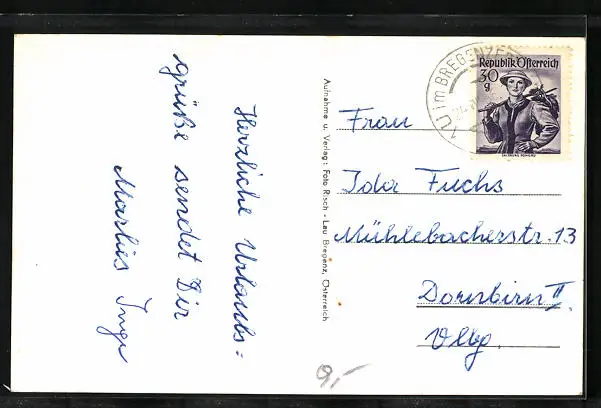 Herzliche Urlaubs=
grüße sendet Dir
Marlies Inge
Aufnahme u. Verlag: Foto Risch - Lau Bregenz, Österreich
AU im BREGENZER
Republik Österreich
30
g
SALZBURG PONGAU
Frau
Ida Fuchs
Mühlebacherstr. 13
Dornbirn II.
Vlbg.
9,-